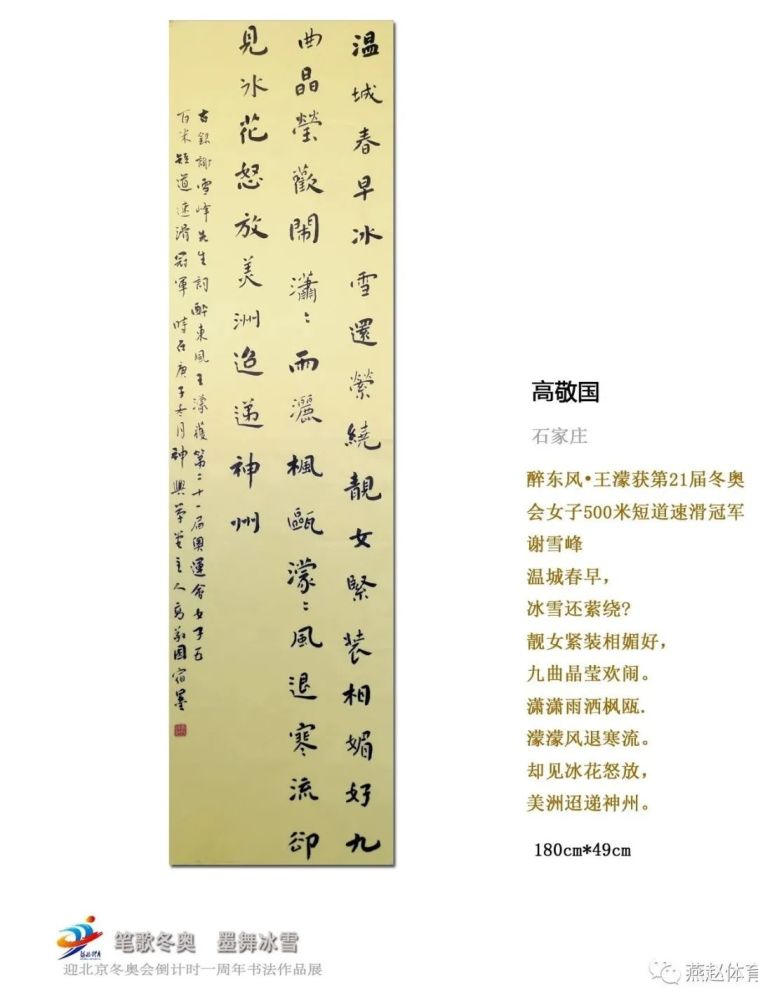 温城春早冰雪還縈繞靚女緊装相媚好九
曲晶瑩歡鬧瀟〻雨灑楓甌濛〻風退寒流卻
見冰花怒放美洲迢递神州
古錄謝雪峰先生詞醉東風王濛獲第二十一届奥運會女子五
百米短道速滑冠軍 時在庚子冬月神興草堂主人高敬國宿墨
高敬国
石家庄
醉东风•王濛获第21届冬奥
会女子500米短道速滑冠军
谢雪峰
温城春早，
冰雪还萦绕?
靓女紧装相媚好，
九曲晶莹欢闹。
潇潇雨洒枫瓯.
濛濛风退寒流。
却见冰花怒放，
美洲迢递神州。
180cm*49cm
笔歌冬奥 墨舞冰雪
迎北京冬奥会倒计时一周年书法作品展
燕赵体育